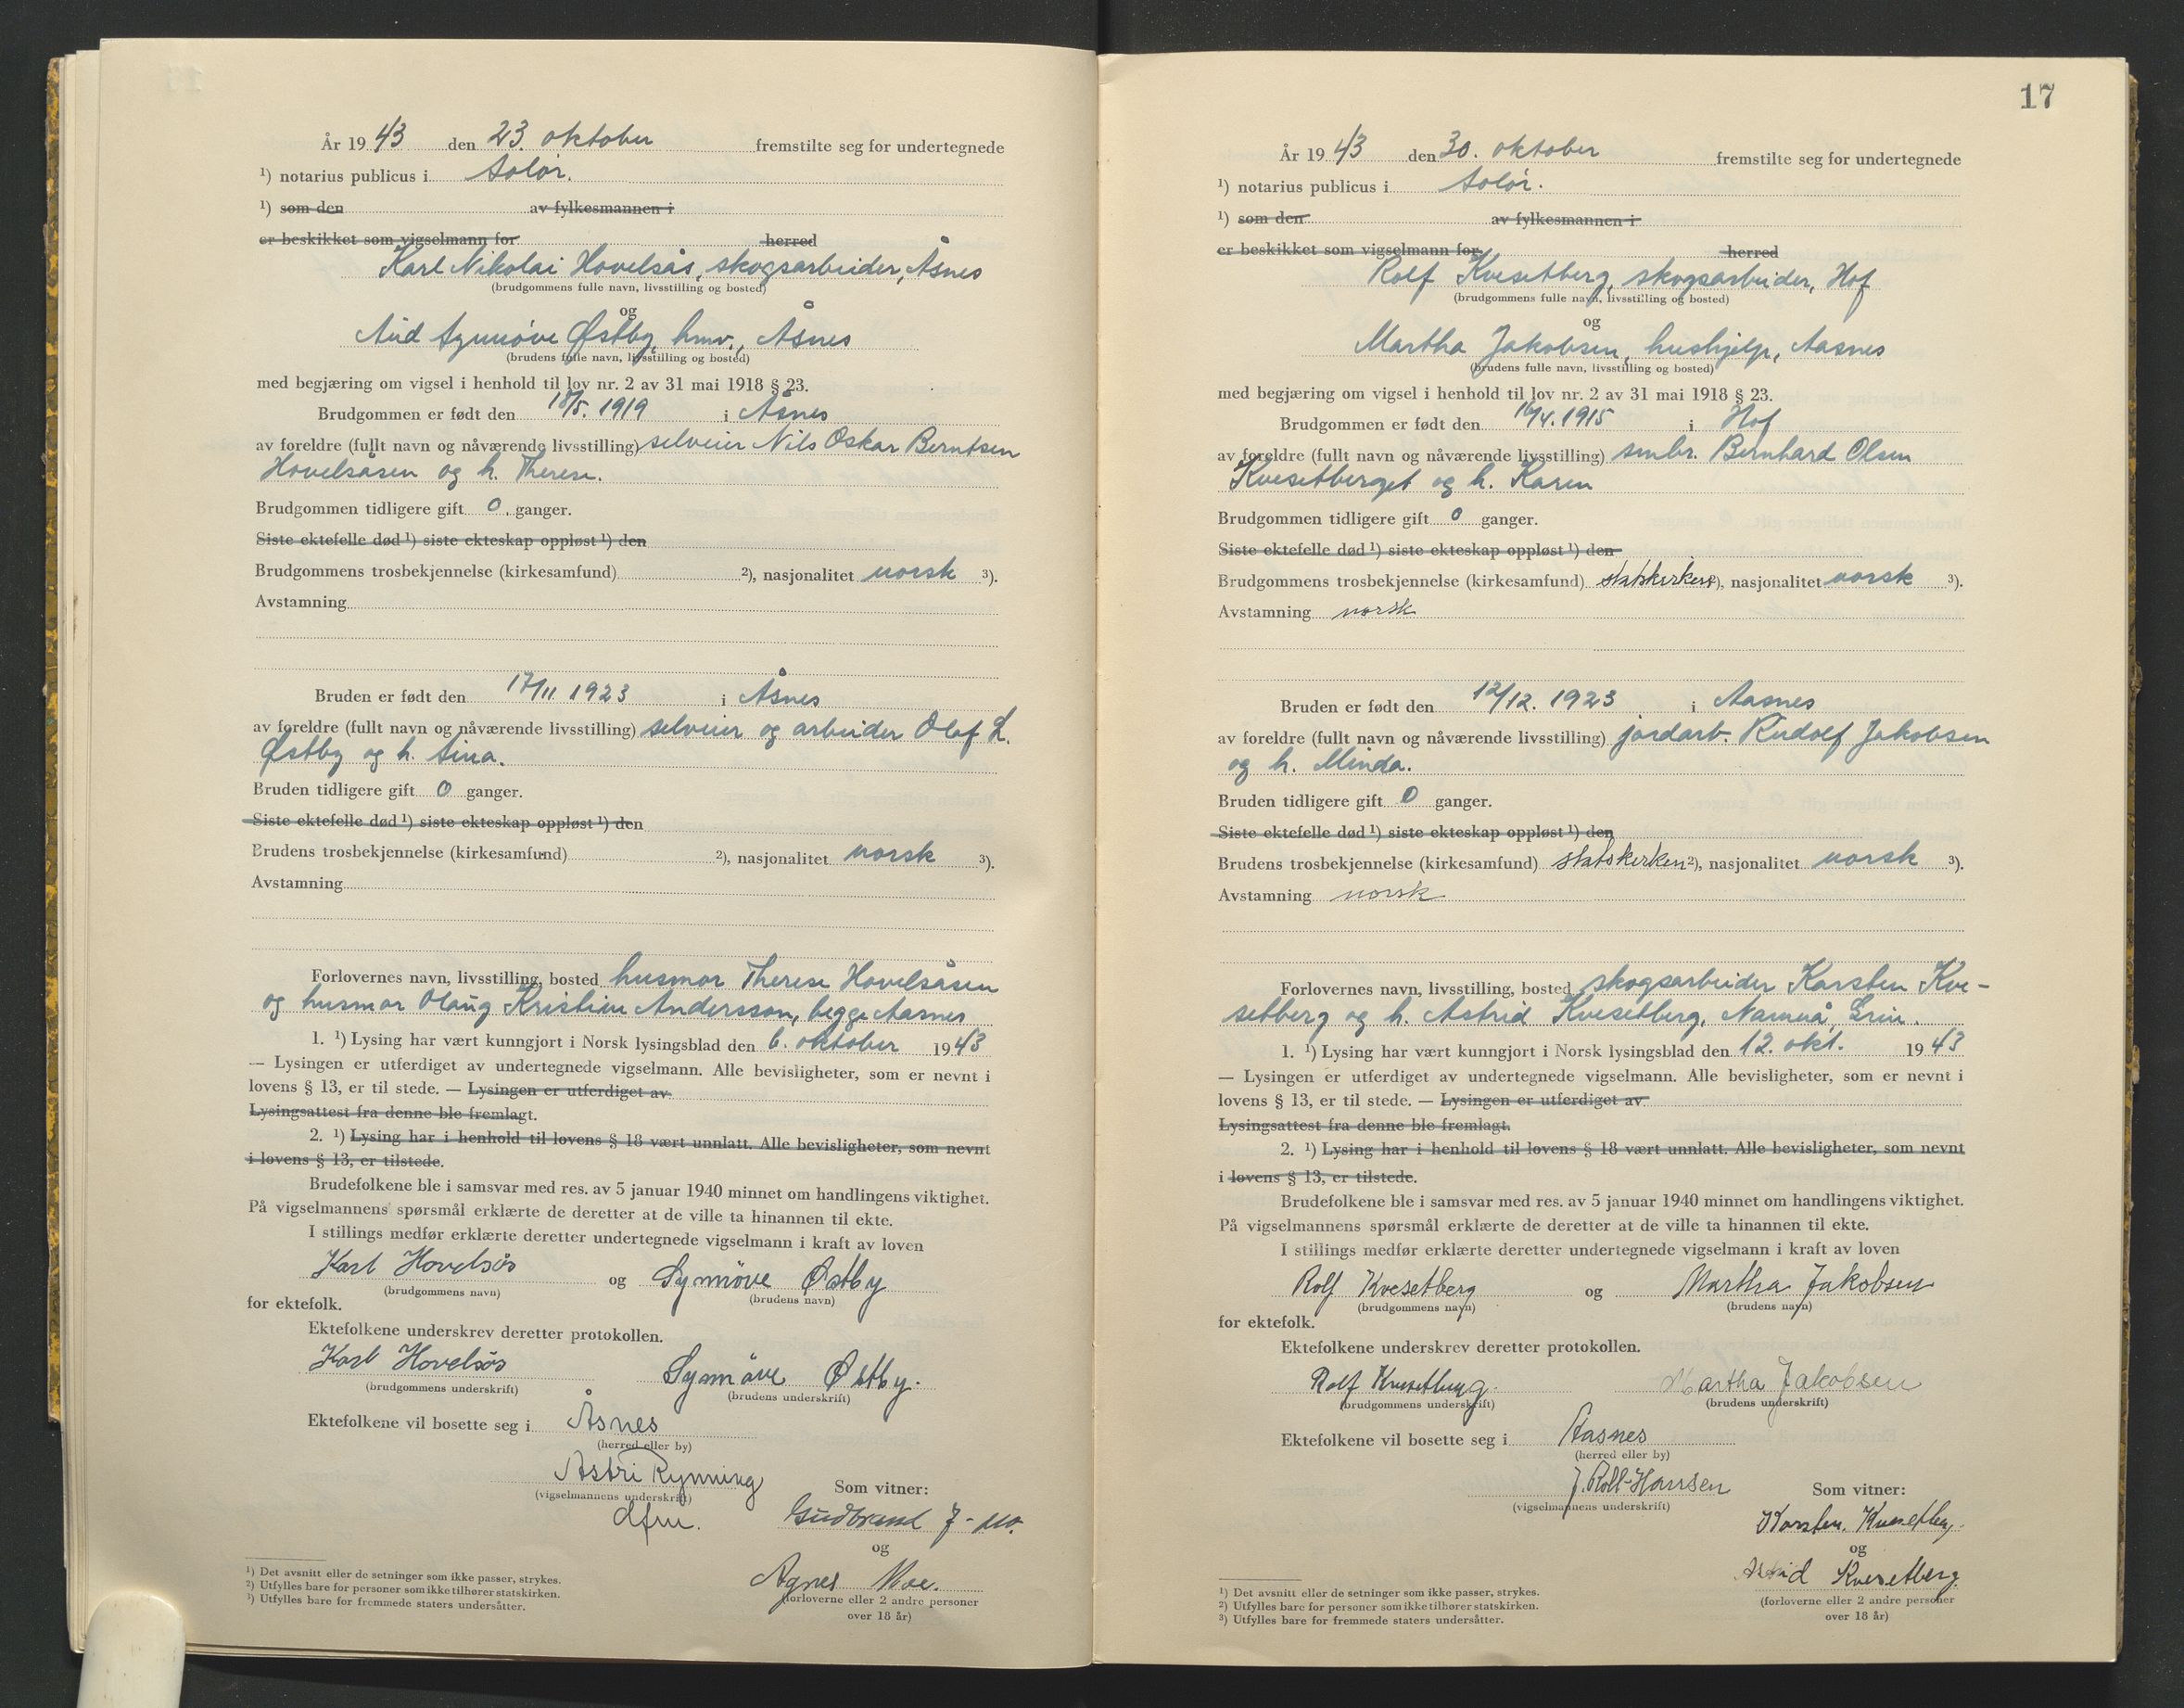 År 1943 den 23. oktober fremstilte seg for undertegnede
¹) notarius publicus i Solør.
¹) som den av fylkesmannen i
er beskikket som vigselmann for herred
Karl Nikolai Hovelsås, skogsarbeider, Åsnes
(brudgommens fulle navn, livsstilling og bosted)
og
Aud Synnöve Østby, hmv., Åsnes
(brudens fulle navn, livsstilling og bosted)
med begjæring om vigsel i henhold til lov nr. 2 av 31 mai 1918 § 23.
Brudgommen er født den 18/5. 1919 i Åsnes
av foreldre (fullt navn og nåværende livsstilling) selveier Nils Oskar Berntsen
Hovelsåsen og h. Therese.
Brudgommen tidligere gift 0 ganger.
Siste ektefelle død ¹) siste ekteskap oppløst ¹) den
Brudgommens trosbekjennelse (kirkesamfund) ²), nasjonalitet norsk ³).
Avstamning
Bruden er født den 17/11 1923 i Åsnes
av foreldre (fullt navn og nåværende livsstilling) selveier og arbeider Olaf L.
Østby og h. Sina.
Bruden tidligere gift 0 ganger.
Siste ektefelle død ¹) siste ekteskap oppløst ¹) den
Brudens trosbekjennelse (kirkesamfund) ²), nasjonalitet norsk ³).
Avstamning
Forlovernes navn, livsstilling, bosted husmor Therese Hovelsåsen
og husmor Olaug Kristine Andersson, begge Aasnes
1. ¹) Lysing har vært kunngjort i Norsk lysingsblad den 6. oktober 1943
— Lysingen er utferdiget av undertegnede vigselmann. Alle bevisligheter, som er nevnt i
lovens § 13, er til stede. — Lysingen er utferdiget av
Lysingsattest fra denne ble fremlagt.
2. ¹) Lysing har i henhold til lovens § 18 vært unnlatt. Alle bevisligheter, som nevnt
i lovens § 13, er tilstede.
Brudefolkene ble i samsvar med res. av 5 januar 1940 minnet om handlingens viktighet.
På vigselmannens spørsmål erklærte de deretter at de ville ta hinannen til ekte.
I stillings medfør erklærte deretter undertegnede vigselmann i kraft av loven
Karl Hovelsås og Synnöve Østby
(brudgommens navn) (brudens navn)
for ektefolk.
Ektefolkene underskrev deretter protokollen.
Karl Hovelsås Synnöve Østby.
(brudgommens underskrift) (brudens underskrift)
Ektefolkene vil bosette seg i Åsnes
(herred eller by)
Astri Rynning
(vigselmannens underskrift) Som vitner:
dfm. Gudbrand J.
og
Agnes Moe.
(forloverne eller 2 andre personer
over 18 år)
¹) Det avsnitt eller de setninger som ikke passer, strykes.
²) Utfylles bare for personer som ikke tilhører statskirken.
³) Utfylles bare for fremmede staters undersåtter.
17
År 1943 den 30. oktober fremstilte seg for undertegnede
¹) notarius publicus i Solør.
¹) som den av fylkesmannen i
er beskikket som vigselmann for herred
Rolf Kvesetberg, skogsarbeider, Hof
(brudgommens fulle navn, livsstilling og bosted)
og
Martha Jakobsen, hushjelp, Aasnes
(brudens fulle navn, livsstilling og bosted)
med begjæring om vigsel i henhold til lov nr. 2 av 31 mai 1918 § 23.
Brudgommen er født den 16/4. 1915 i Hof
av foreldre (fullt navn og nåværende livsstilling) smbr. Bernhard Olsen
Kvesetberget og h. Karen
Brudgommen tidligere gift 0 ganger.
Siste ektefelle død ¹) siste ekteskap oppløst ¹) den
Brudgommens trosbekjennelse (kirkesamfund) statskirken ²), nasjonalitet norsk ³).
Avstamning norsk
Bruden er født den 12/12. 1923 i Aasnes
av foreldre (fullt navn og nåværende livsstilling) jordarb. Rudolf Jakobsen
og h. Minda.
Bruden tidligere gift 0 ganger.
Siste ektefelle død ¹) siste ekteskap oppløst ¹) den
Brudens trosbekjennelse (kirkesamfund) statskirken ²), nasjonalitet norsk ³).
Avstamning norsk
Forlovernes navn, livsstilling, bosted skogsarbeider Karsten Kve-
setberg og h. Astrid Kvesetberg, Namnå, Grue.
1. ¹) Lysing har vært kunngjort i Norsk lysingsblad den 12. okt. 1943
— Lysingen er utferdiget av undertegnede vigselmann. Alle bevisligheter, som er nevnt i
lovens § 13, er til stede. — Lysingen er utferdiget av
Lysingsattest fra denne ble fremlagt.
2. ¹) Lysing har i henhold til lovens § 18 vært unnlatt. Alle bevisligheter, som nevnt
i lovens § 13, er tilstede.
Brudefolkene ble i samsvar med res. av 5 januar 1940 minnet om handlingens viktighet.
På vigselmannens spørsmål erklærte de deretter at de ville ta hinannen til ekte.
I stillings medfør erklærte deretter undertegnede vigselmann i kraft av loven
Rolf Kvesetberg og Martha Jakobsen
(brudgommens navn) (brudens navn)
for ektefolk.
Ektefolkene underskrev deretter protokollen.
Rolf Kvesetberg. Martha Jakobsen
(brudgommens underskrift) (brudens underskrift)
Ektefolkene vil bosette seg i Aasnes
(herred eller by)
J. Roll-Hansen
(vigselmannens underskrift) Som vitner:
Karsten. Kvesetberg.
og
Astrid Kvesetberg.
(forloverne eller 2 andre personer
over 18 år)
¹) Det avsnitt eller de setninger som ikke passer, strykes.
²) Utfylles bare for personer som ikke tilhører statskirken.
³) Utfylles bare for fremmede staters undersåtter.